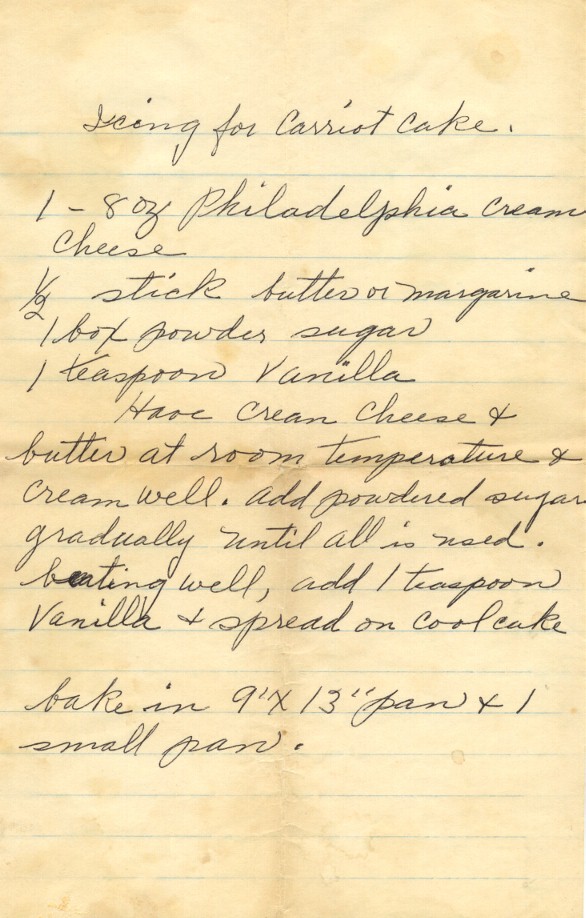 Icing for Carriot Cake.
1 - 8 oz Philadelphia Cream
Cheese
1/2 stick butter or margarine
1 box powder sugar
1 teaspoon Vanilla
Have Crean Cheese &
butter at room temperature &
Cream well. add powdered sugar
gradually until all is used.
beating well, add 1 teaspoon
Vanilla & spread on cool cake
bake in 9" X 13" pan & 1
small pan.